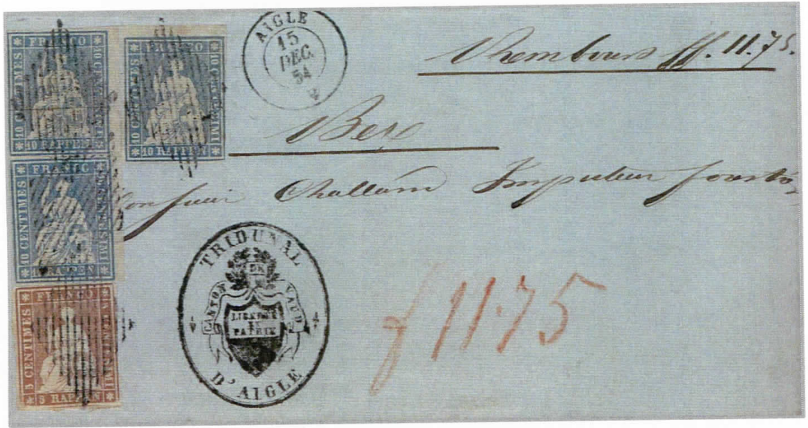 10 CENTIMES FRANCO 10 CENTIMES
10 RAPPEN
10 CENTIMES FRANCO 10 CENTIMES
10 RAPPEN
AIGLE
15
DEC.
54
Rembours ff. 11.75.
Bex
10 CENTIMES FRANCO 10 CENTIMES
RAPPEN
Monsieur
5 CENTIMES FRANCO
5 RAPPEN
TRIBUNAL
DE
CANTON VAUD
LIBERTÉ
ET
PATRIE
D'AIGLE
f 11.75